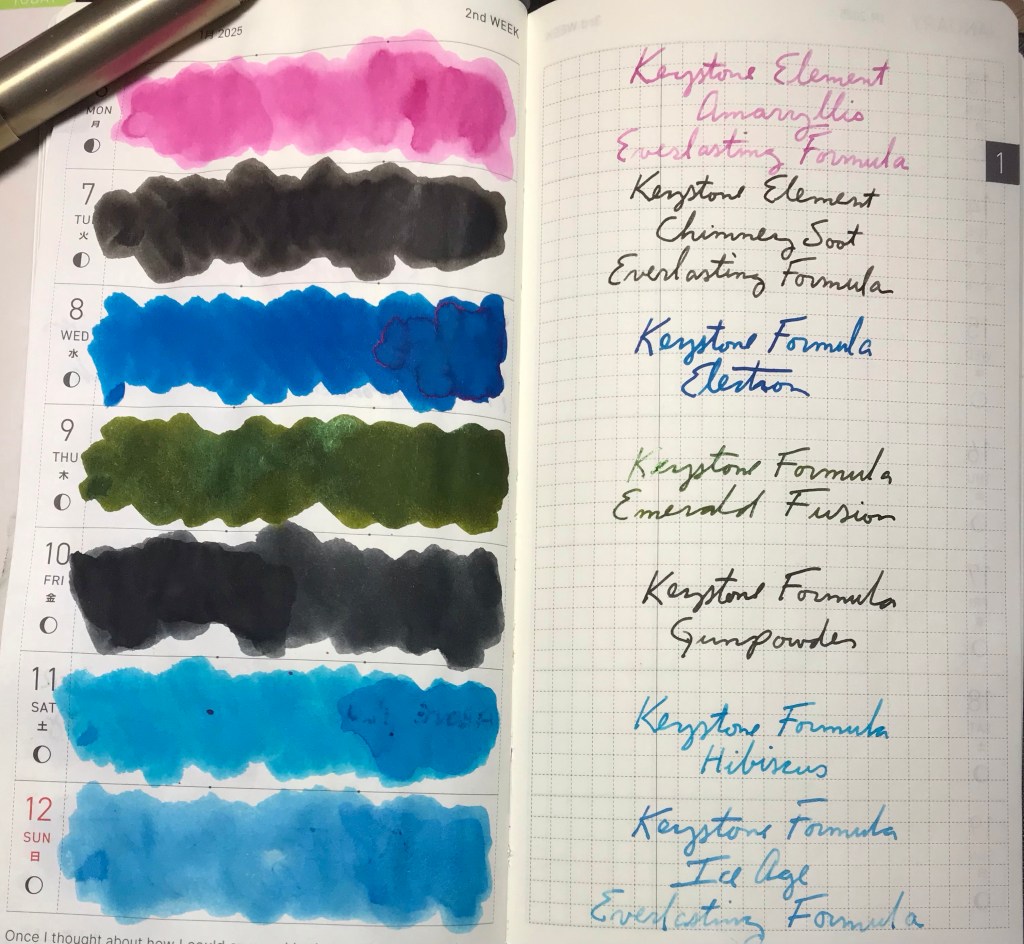 TODAY
1月 2025
2nd WEEK
MON
月
7
TU
火
8
WED
水
9
THU
木
10
FRI
金
11
SAT
土
12
SUN
日
Once I thought about how I could
Keystone Element
Amaryllis
Everlasting Formula
1
Keystone Element
Chimney Soot
Everlasting Formula
Keystone Formula
Electron
Keystone Formula
Emerald Fusion
Keystone Formula
Gunpowder
Keystone Formula
Hibiscus
Keystone Formula
Ice Age
Everlasting Formula